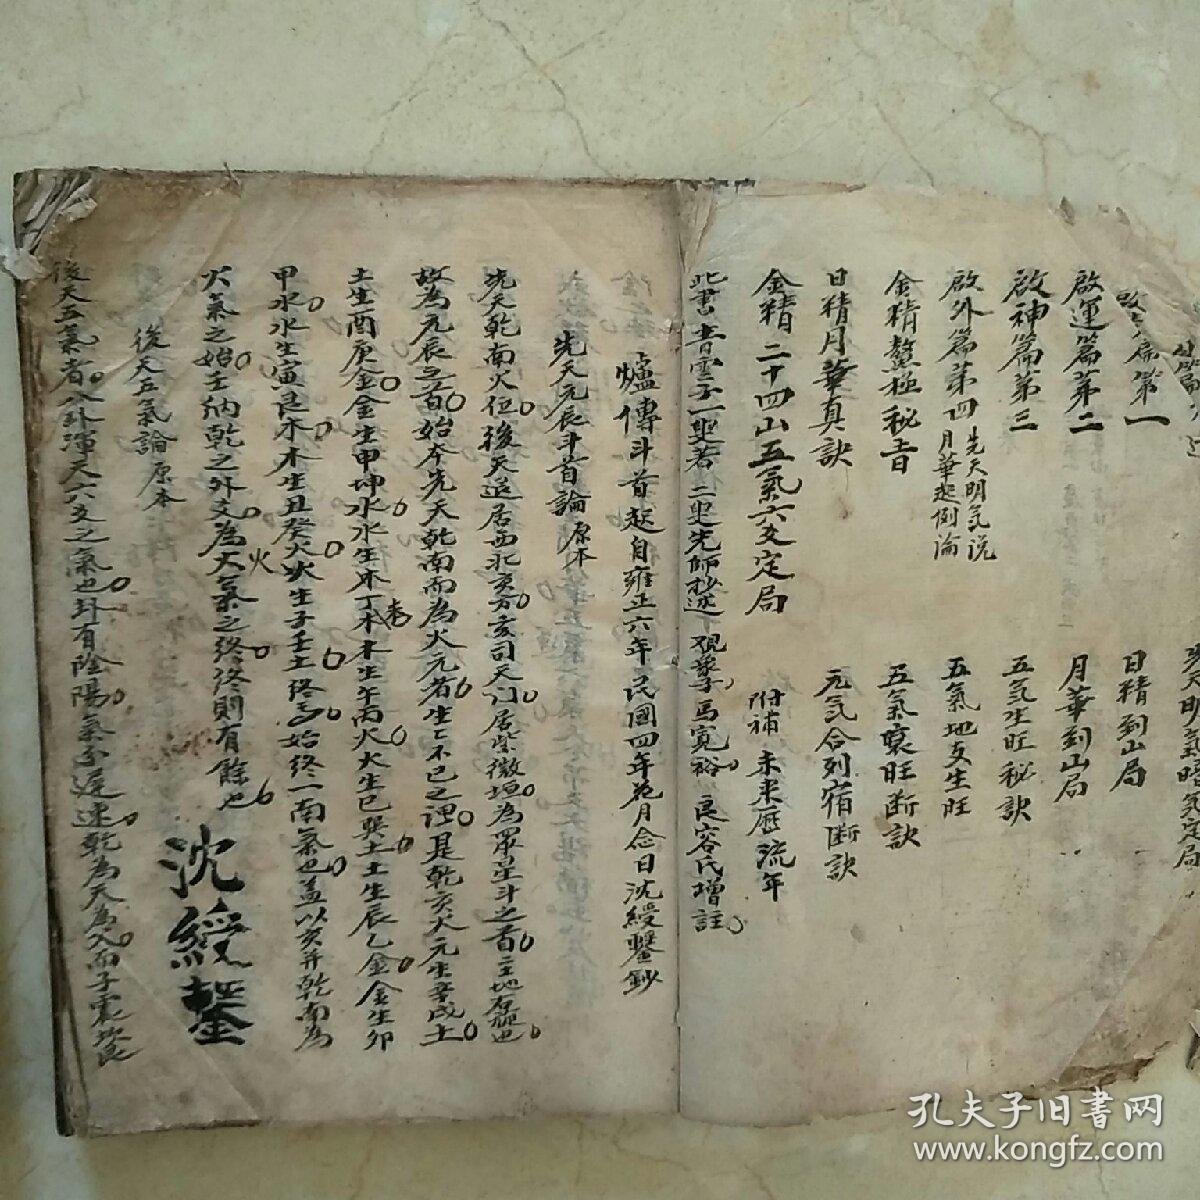 啟運篇第二
月華到山局
啟神篇第三
五氣生旺秘訣
啟外篇第四
先天明氣說
月華起例論
五氣地支生旺
金精鰲極秘旨
五氣衰旺断訣
日精月華真訣
元气合列宿断訣
金精二十四山五氣六爻定局
附補 未来曆流年
日精到山局
爐傳斗首起自雍正六年民國四年花月念日沈綬鑒鈔
先天元辰斗首論 原本
先天乾南火位後天退居西北亥方亥司天门居紫微垣為眾星斗之首主地
故為元辰之首始本先天乾南而為火元者生生不已之理是乾亥火元生辛戌土
土生酉庚金金生申坤水水生未丁木木生午丙火火生巳巽土土生辰乙金金生卯
甲水水生寅艮木木生丑癸火火生子壬土終于始終一南氣也盖以亥并乾南為
火氣之始壬納乾之外爻為火氣之終終則有餘也
沈綬鑒
後天五氣論 原本
後天五氣者八卦渾天六爻之氣也卦有陰陽氣分遲速乾為天為父而子震坎艮
孔夫子旧書网
www.kongfz.com